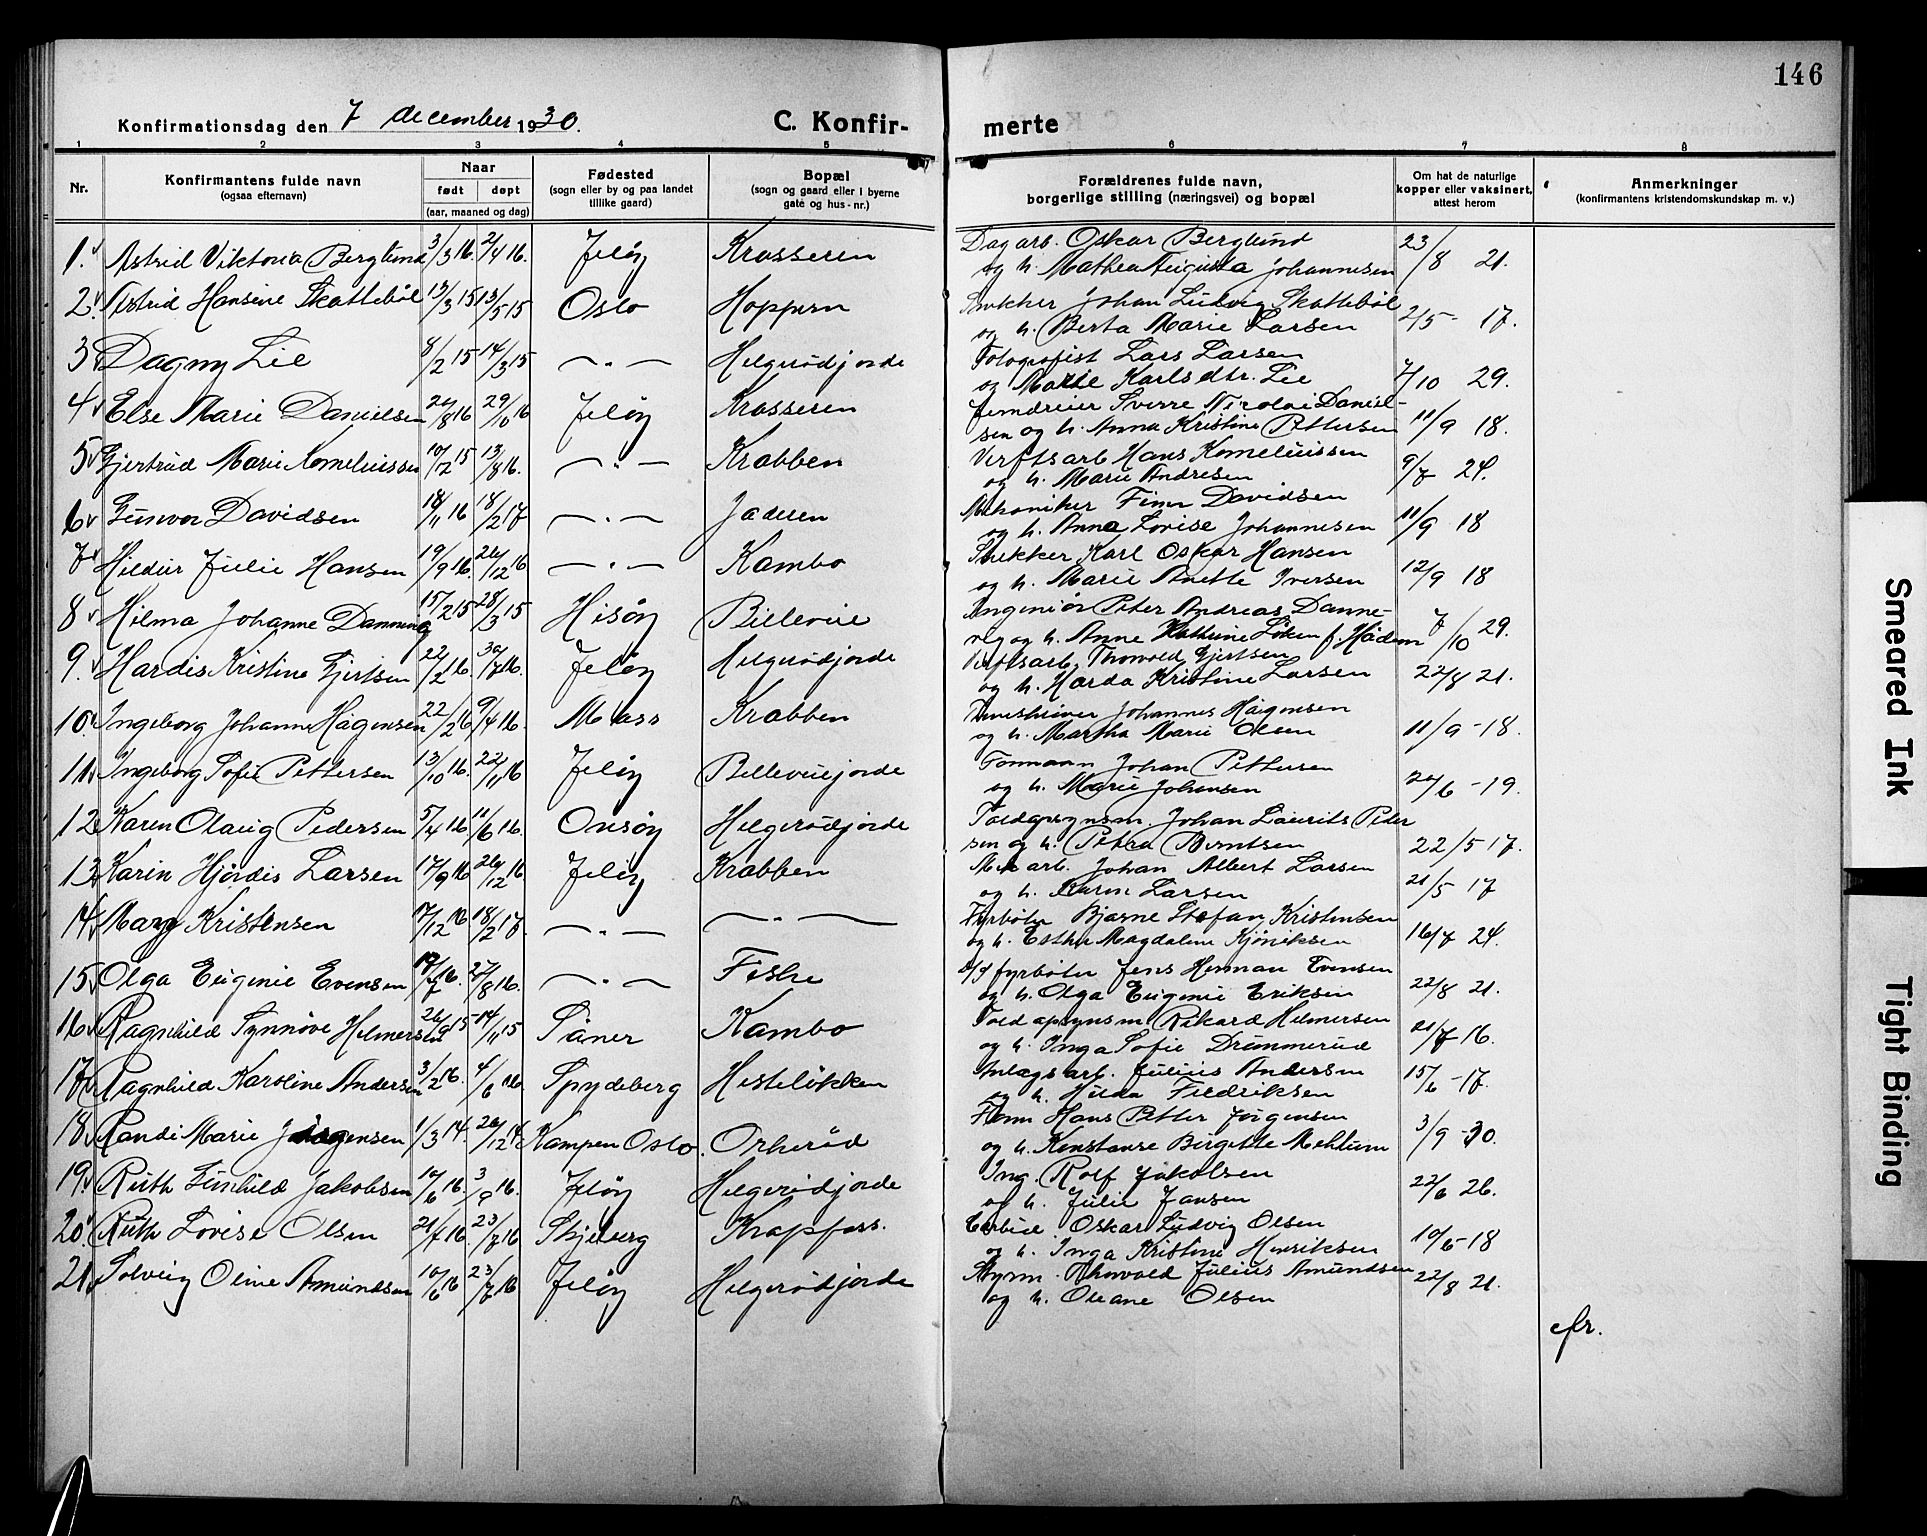 146
Konfirmationsdag den 7 december 1930.
C. Konfir- merte
1 2 3 4 5 6 7 8
Nr.
Konfirmantens fulde navn
(ogsaa efternavn)
Naar
født døpt
(aar, maaned og dag)
Fødested
(sogn eller by og paa landet
tillike gaard)
Bopæl
(sogn og gaard eller i byerne
gate og hus-nr.)
Forældrenes fulde navn,
borgerlige stilling (næringsvei) og bopæl
Om hat de naturlige
kopper eller vaksinert,
attest herom
Anmerkninger
(konfirmantens kristendomskundskap m. v.)
1. Astrid Viktoria Berglund 3/3 16. 2/4 16. Jeløy Krosseren Dagarb. Oskar Berglund 23/8 21.
og h. Mathea Augusta Johannesen
2. Astrid Hansine Skattebøl 13/3 15 13/5 15 Oslo Hoppern Snekker Johan Ludvig Skattebøl
og h. Berta Marie Larsen 2/5 - 17.
3 Dagny Lie 8/2 15 14/3 15 —〃— Helgerødjorde Fotografist Lars Larsen
og Marie Karlsdtr. Lie 7/10 29.
4 Else Marie Danielsen 8 16 29/10 16 Jeløy Krosseren Jerndreier Sverre Nicolai Daniel-
sen og h. Anna Kristine Pettersen 11/9 18.
5 Gjertrud Marie Korneliussen 10/12 15 13/8 16. —〃— Krabben Verftsarb Hans Korneliussen
og h. Marie Andresen 9/7 24.
6 Gunvor Davidsen 18/11 16 18/2 17 —〃— Jaderen Mekaniker Finn Davidsen
og h. Anna Lovise Johannesen 11/9 18
7 Hildur Julie Hansen 19/9 16. 26/12 16 —〃— Kambo Snekker Karl Oskar Hansen
og h. Marie Anette Iversen 12/9 18
8 Hilma Johanne Dannevig 15/2 15 28/3 15 Hisøy Billevue Ingeniør Peter Andreas Danne-
vig og h. Anne Kathrine Løken f. Hådem 7/10 29.
9. Hardis Kristine Gjertsen 22/2 16. 30/7 16. Jeløy Helgerødjorde Verftsarb. Thorvald Gjertsen
og h. Harda Kristine Larsen 22/8 21.
10 Ingeborg Johanne Hagensen 22/2 16 9/4 16. Moss Krabben Johannes Hagensen
og h. Martha Marie Olsen 11/9 - 18.
11 Ingeborg Sofie Pettersen 13/10 16. 22/11 16 Jeløy Bellevuejorde Formann Johan Pettersen
og h. Marie Johansen 20/6 - 19.
12 Karen Olaug Pedersen 5/4 16 11/6 16. Onsøy Helgerødjorde Toldopsynsm. Johan Laurits Peder
sen og h. Petra Berntsen 22/5 17.
13 Karin Hjørdis Larsen 17/9 16 26/12 16 Jeløy Krabben arb. Johan Albert Larsen
og h. Karen Larsen 21/5 17
14 Mary Kristensen 17/12 16 18/2 17. —〃— —〃— Fyrbøter Bjarne Stefan Kristensen
og h. Esther Magdalene Kjøniksen 16/7 24.
15 Olga Eugenie Evensen 7 16. 27/8 16. —〃— Feste fyrbøter Jens Herman Evensen
og h. Olga Eugenie Eriksen 22/8 21.
16 Ragnhild Synnøve Helmersen 26/9 15 14/11 15 Såner Kambo Toldopsynsm Rikard Helmersen
og h. Inga Sofie Drømmerud 21/7 16.
17 Ragnhild Karoline Andersen 3/2 16. 4/6 16 Spydeberg Hesteløkken Anlægsarb. Julius Andersen
og h. Hilda Fredriksen 15/6 - 17.
18 Randi Marie Jørgensen 1/3 14. 26/12 14. Kampen Oslo. Orkerød Form Hans Petter Jørgensen
og h. Konstanse Birgitte Mehlum 3/9 - 30.
19. Ruth Gunhild Jakobsen 10/6 16. 3/9 16. Jeløy Helgerødjorde Ing. Rolf Jakobsen
og h. Julie Jansen 22/6 26.
20. Ruth Lovise Olsen 21/4 16 23/7 16 Skjeberg Krapfoss. Oskar Ludvig Olsen
og h. Inga Kristine Henriksen 10/6 - 18
21. Solveig Oline Amundsen 10/6 16 23/7 16 Jeløy Helgerødjorde Styrm. Thorvald Julius Amundsen
og h. Oleane Olsen 22/8 21.
cfr.
Smeared Ink
Tight Binding